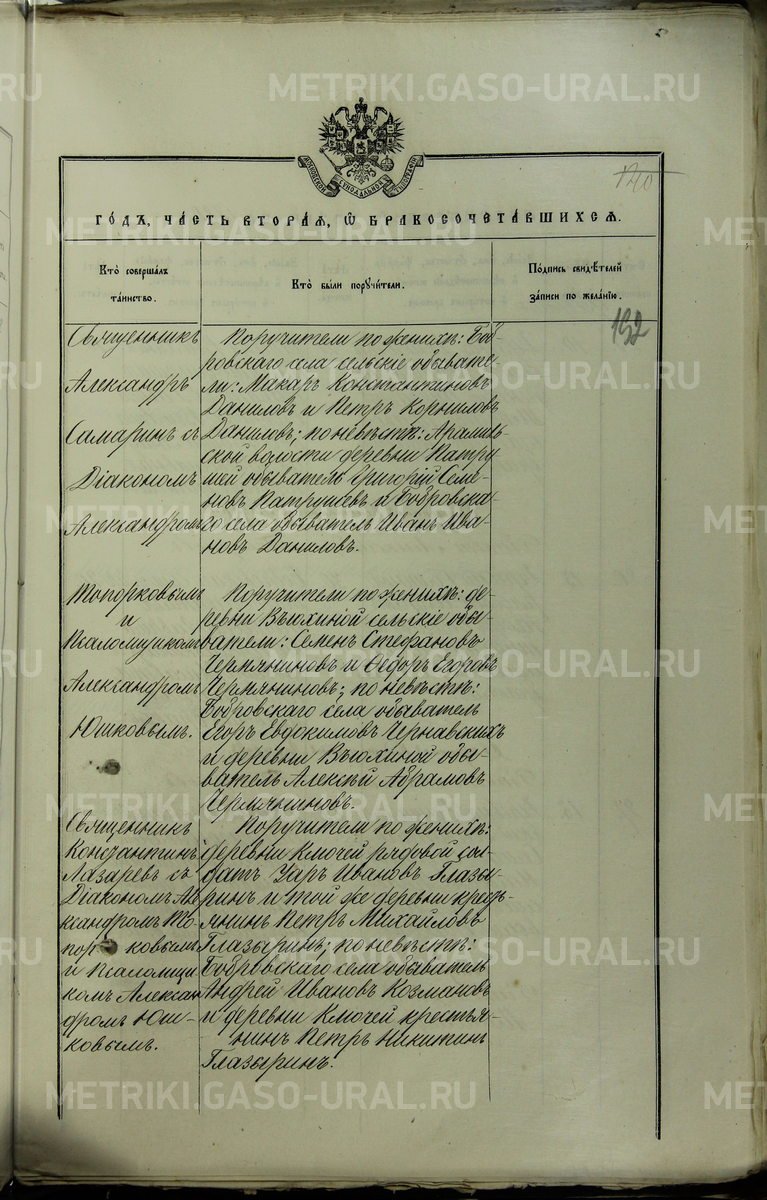 METRIKI.GASO-URAL.RU
140
ГО́ДЪ, ЧА́СТЬ ВТОРА́Я, Ѡ БРАКОСОЧЕТА́ВШИХСЯ.
Кто̀ соверша́лъ
та́инство.
Кто̀ бы́ли поручи́тели.
По́дпись свидѣ́телей
за́писи по жела́нію.
132
Священникъ
Александръ
Самаринъ съ
Діакономъ
Александромъ
Топорковымъ
и
Псаломщикомъ
Александромъ
Юшковымъ.
Поручители по женихѣ: Боб-
ровскаго села сельскіе обывате-
ли: Макаръ Константиновъ
Даниловъ и Петръ Корниловъ
Даниловъ; по невѣстѣ: Арамиль-
ской волости деревни Патру
шей обыватель Григорій Семе-
новъ Патрушевъ и Бобровска-
го села обыватель Иванъ Ива-
новъ Даниловъ.
Поручители по женихѣ: де-
ревни Вьюхиной сельскіе обы-
ватели: Семенъ Стефановъ
Чермяниновъ и Ѳедоръ Егоровъ
Чермяниновъ; по невѣстѣ:
Бобровскаго села обыватель
Егоръ Евдокимовъ Чернавскихъ
и деревни Вьюхиной обы-
ватель Алексѣй Абрамовъ
Чермяниновъ.
Священникъ
Константинъ
Лазаревъ съ
Діакономъ Але
ксандромъ То-
порковымъ
и Псаломщи
комъ Алексан
дромъ Юш-
ковымъ.
Поручители по женихѣ:
деревни Ключей рядовой сол-
датъ Уаръ Ивановъ Глазы-
ринъ и той же деревни кресть-
янинъ Петръ Михайловъ
Глазыринъ; по невѣстѣ:
Бобровскаго села обыватель
Андрей Ивановъ Козмановъ
и деревни Ключей крестья-
нинъ Петръ Никитинъ
Глазыринъ.
METRIKI.GASO-URAL.RU